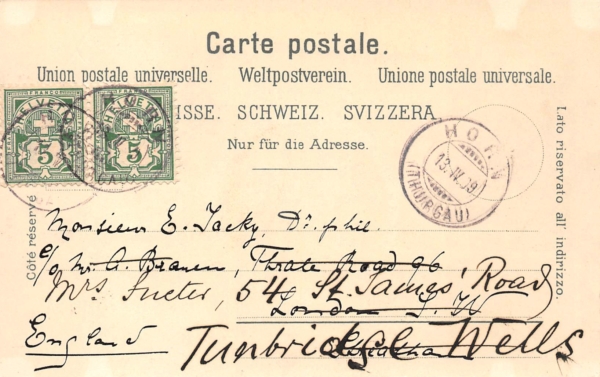 Carte postale.
Union postale universelle. Weltpostverein. Unione postale universale.
ISSE. SCHWEIZ. SVIZZERA
Nur für die Adresse.
Côté réservé
Lato riservato all' indirizzo.
FRANCO
HELVETIA
5
FRANCO
HELVETIA
5
HORN
13.IV.99
(THURGAU)
Monsieur E. Jacky, Dr. phil.
c/o Mr. A. Brauen, Thrale Road 96
Mrs Sueter, 54 St. James' Road
London S. W.
Streatham
England Tunbridge Wells